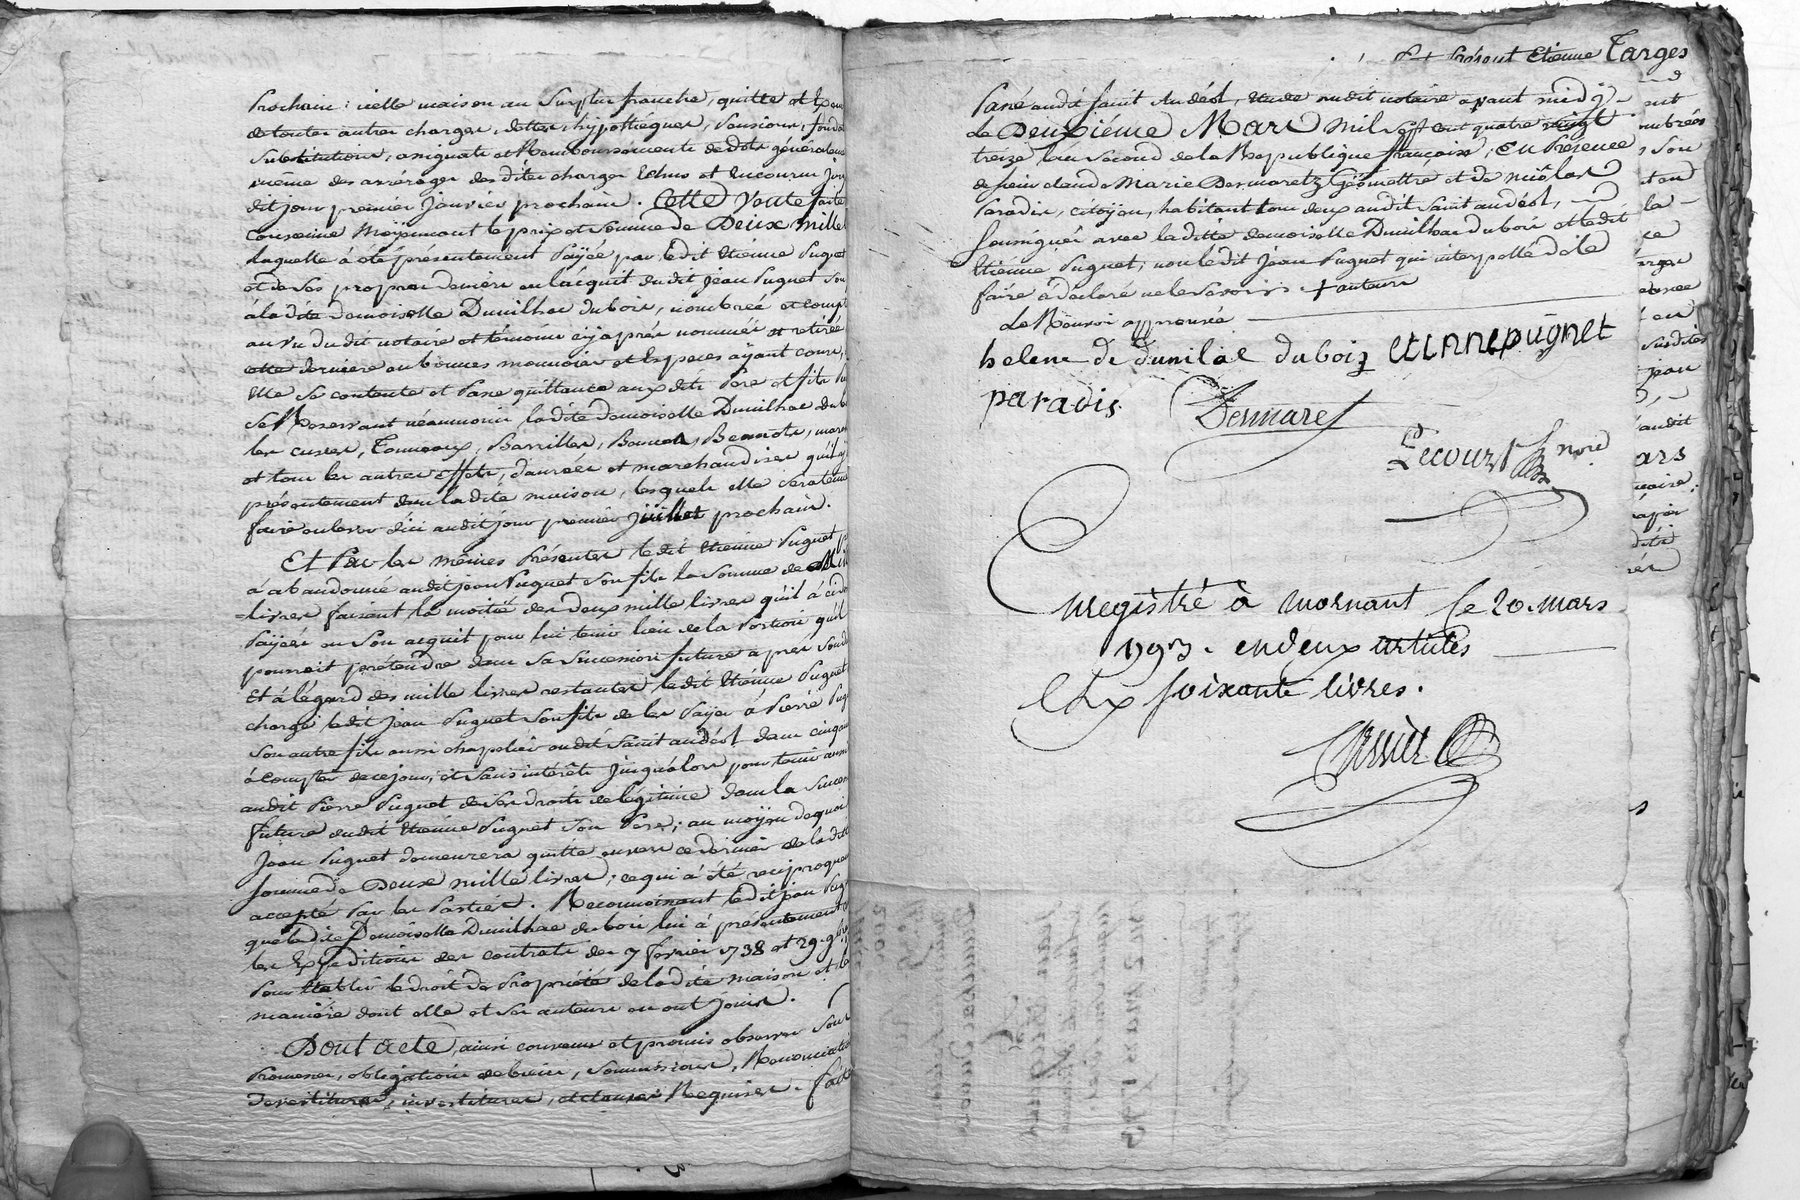 Prochain : icelle maison au Surplus franche, quitte et Exem
de toutes autres charges, dettes, hypothéques, Pensions, fonda
Substitutions, assignats et Remboursements de dots généralem
même des arrérages des dites charges Echus et encourus jusq
dit jour premier Janvier prochain. Cette Vente faite
convenue Moyennant le prix et Somme de Deux mille
laquelle à été présentement Païée par ledit Etienne Puguet
et de Ses propres deniers en l'acquit dudit Jean Puguet Son
à ladite demoiselle Dumilhac dubois, nombreé et comp
au vu dudit notaire et témoins cy après nommés et retirée
cette derniere en bonnes monnoies et Especes aÿant cours,
Elle Se contente et Passe quittance auxdits Pere et fils Pu
Se Reservant néanmoins ladite demoiselle Dumilhac dub
les cuves, Tonneaux, Barrilles, Bennes, Bennots,
et tous les autres Effets, danrées et marchandises qu'il y
présentement dans ladite maison, lesquels elle sera tenue
faire enlever d'ici audit jour premier jüillet prochain.
Et Par les mêmes Présentes ledit Etienne Puguet
à abandonné audit jean Puguet Son fils la Somme de Mil
=livres faisant la moitié des deux mille livres qu'il à ci d
Païées en Son acquit pour lui tenir lieu de la Portion qu'il
pourroit prétendre dans Sa Succession future après Son d
Et à l'égard des mille livres restantes ledit Etienne Puguet
chargé ledit jean Puguet Son fils de les Païer à Pierre Pug
Son autre fils aussi chapelier audit Saint andéol dans cinq an
à compter de ce jour, et Sans intérêts jusqu'alors pour tenir aussi
audit Pierre Puguet de Ses droits de légitime dans la Succes
future dudit Etienne Puguet Son Pere ; au moÿen de quoi
Jean Puguet demeurera quitte envers ce dernier de ladite
Somme de Deux mille livres ; ce qui à été reciproquem
accepté Par les Parties. Reconnoissant ledit jean Pug
que ladite Demoiselle Dumilhac dubois lui à présentement
les Expéditions des contrats des 7 fevrier 1738 et 29.
Pour Etablir le droit de Propriété de ladite maison et la
maniere dont elle et Ses auteurs en ont jouis.
Dont acte, ainsi convenu et promis observer Sous
Promesses, obligations de biens, Soumissions, Renonciatio
devestitures, investitures, et clauses Requises. fait
Est Présent Etienne Targes
Passé audit Saint Andéol, Etude dudit notaire avant midy
Le Deuxiéme Mars mil Sept cent quatre vingt
treize l'an Second de la Republique françoise, en Présence
de Sieur claude Marie Desmaretz Géomettre et de nicolas
Paradis, citoÿens, habitants tous deux audit Saint andéol,
Soussignés avec ladite demoiselle Dumilhac dubois et ledit
Etienne Puguet, non ledit Jean Puguet qui interpellé de le
faire à declaré ne le Savoir. + auteurs
Le Renvoi approuvé
helene de dumilac duboiz etinnepugnet
paradis Desmaret
Lecourt nore
Enregistré à mornant le 20. mars
1793. en deux articles
Ex soixante livres.